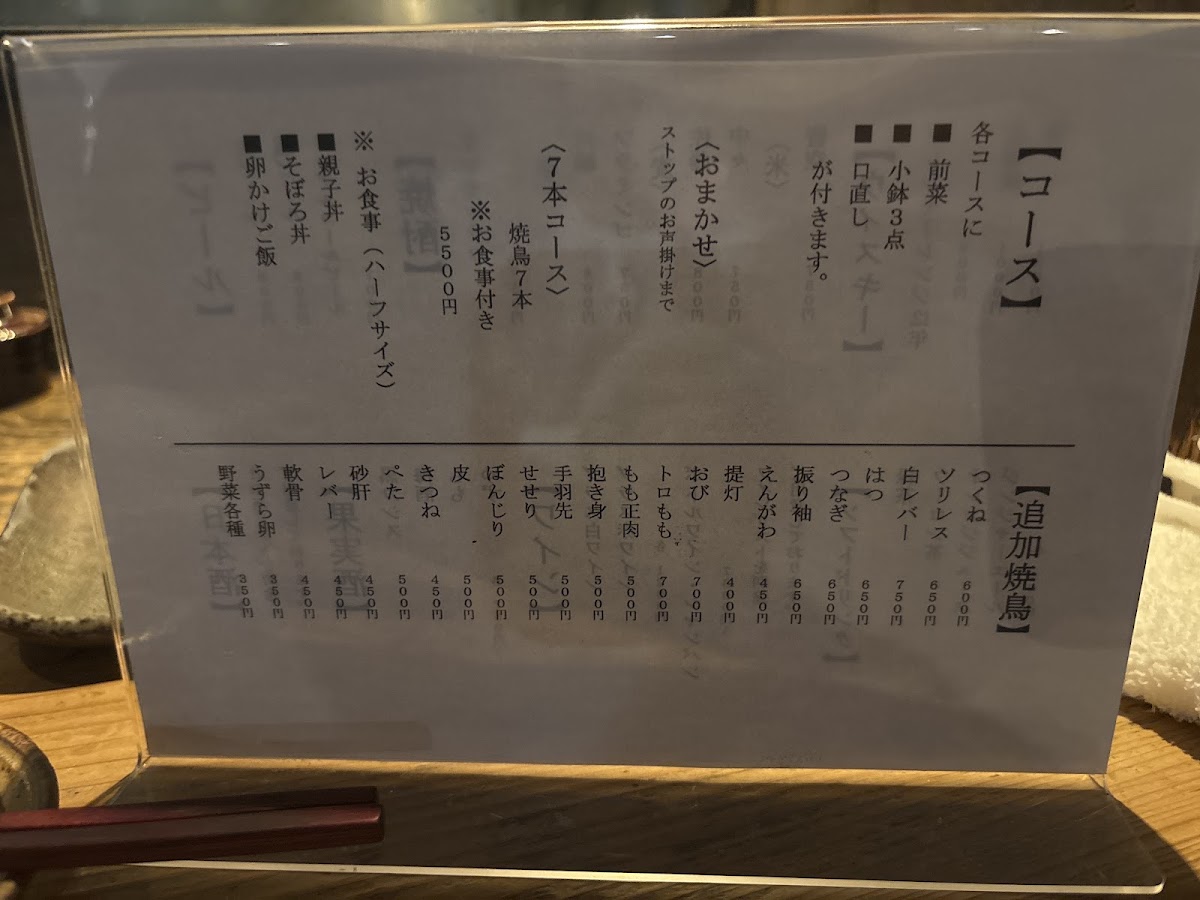 【コース】
各コースに
■ 前菜
■ 小鉢３点
■ 口直し
が付きます。
〈おまかせ〉
ストップのお声掛けまで
〈７本コース〉
焼鳥７本
※お食事付き
５５００円
※ お食事（ハーフサイズ）
■親子丼
■そぼろ丼
■卵かけご飯
【追加焼鳥】
つくね ６００円
ソリレス ６５０円
白レバー ７５０円
はつ ６５０円
つなぎ ６５０円
振り袖 ６５０円
えんがわ ４５０円
提灯 ４００円
おび ７００円
トロもも ７００円
もも正肉 ５００円
抱き身 ５００円
手羽先 ５００円
せせり ５００円
ぼんじり ５００円
皮 ５００円
きつね ４５０円
ぺた ５００円
砂肝 ４５０円
レバー ４５０円
軟骨 ４５０円
うずら卵 ３５０円
野菜各種 ３５０円